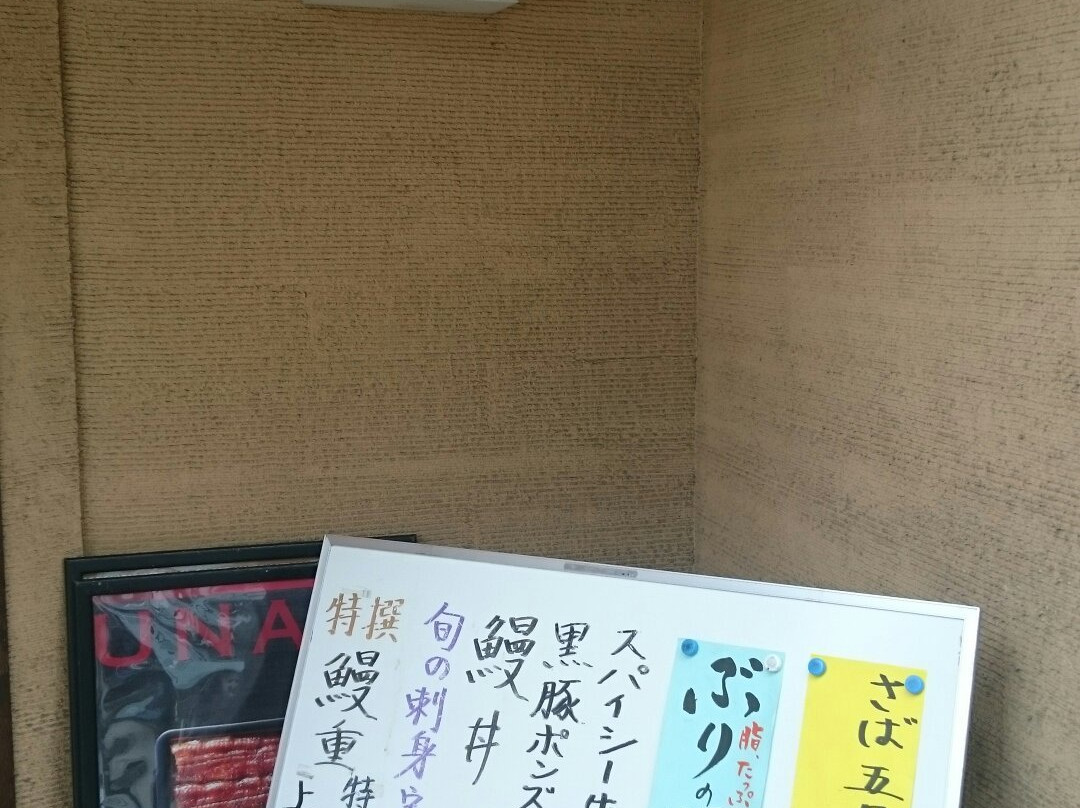 さば五
ぶりの
脂、たっぷ
スパイシー
黒豚ポンズ
鰻丼
旬の刺身
特撰
鰻重
上 特
UNA